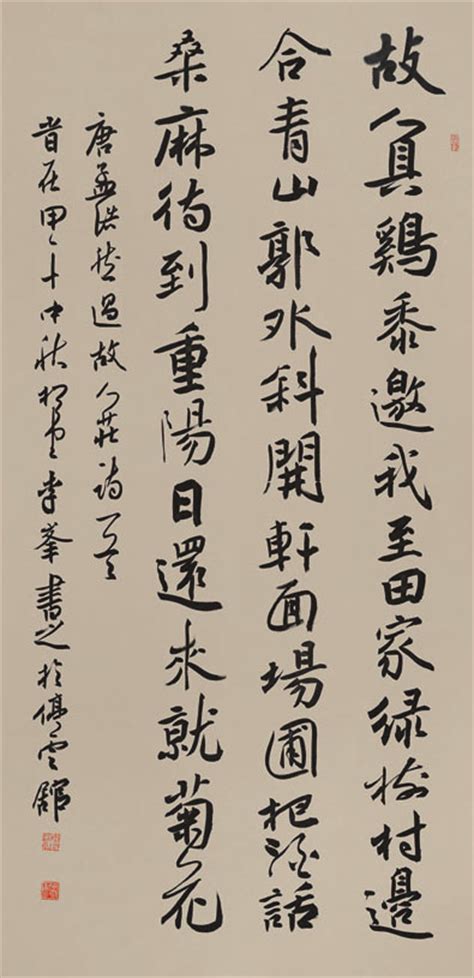 故人具鷄黍邀我至田家緑樹村邊
合青山郭外斜開軒面場圃把酒話
桑麻待到重陽日還來就菊花
唐孟浩然過故人莊詩一首
旹在甲午中秋李峯書之於停雲館